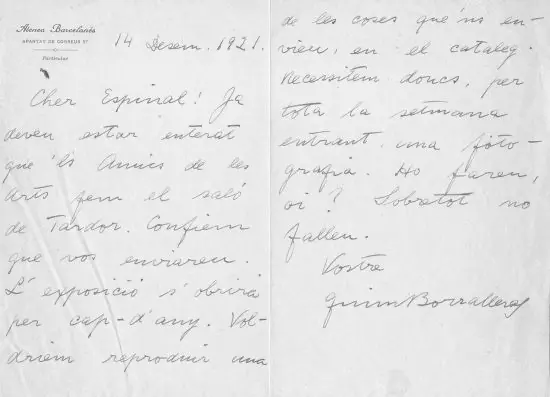 Ateneu Barcelonès
APARTAT DE CORREUS 87
Particular
14 Desem. 1921.
Cher Espinal! Ja
deveu estar enterat
que 'ls Amics de les
Arts fem el saló
de Tardor. Confiem
que vos enviareu.
L'exposició s'obrirà
per cap-d'any. Vol-
driem reproduir una
de les coses que'ns en-
vieu, en el cataleg.
Necessitem doncs, per
tota la setmana
entrant una foto-
grafia. Ho fareu,
oi? Sobretot no
falleu.
Vostre
Quim Borralleras